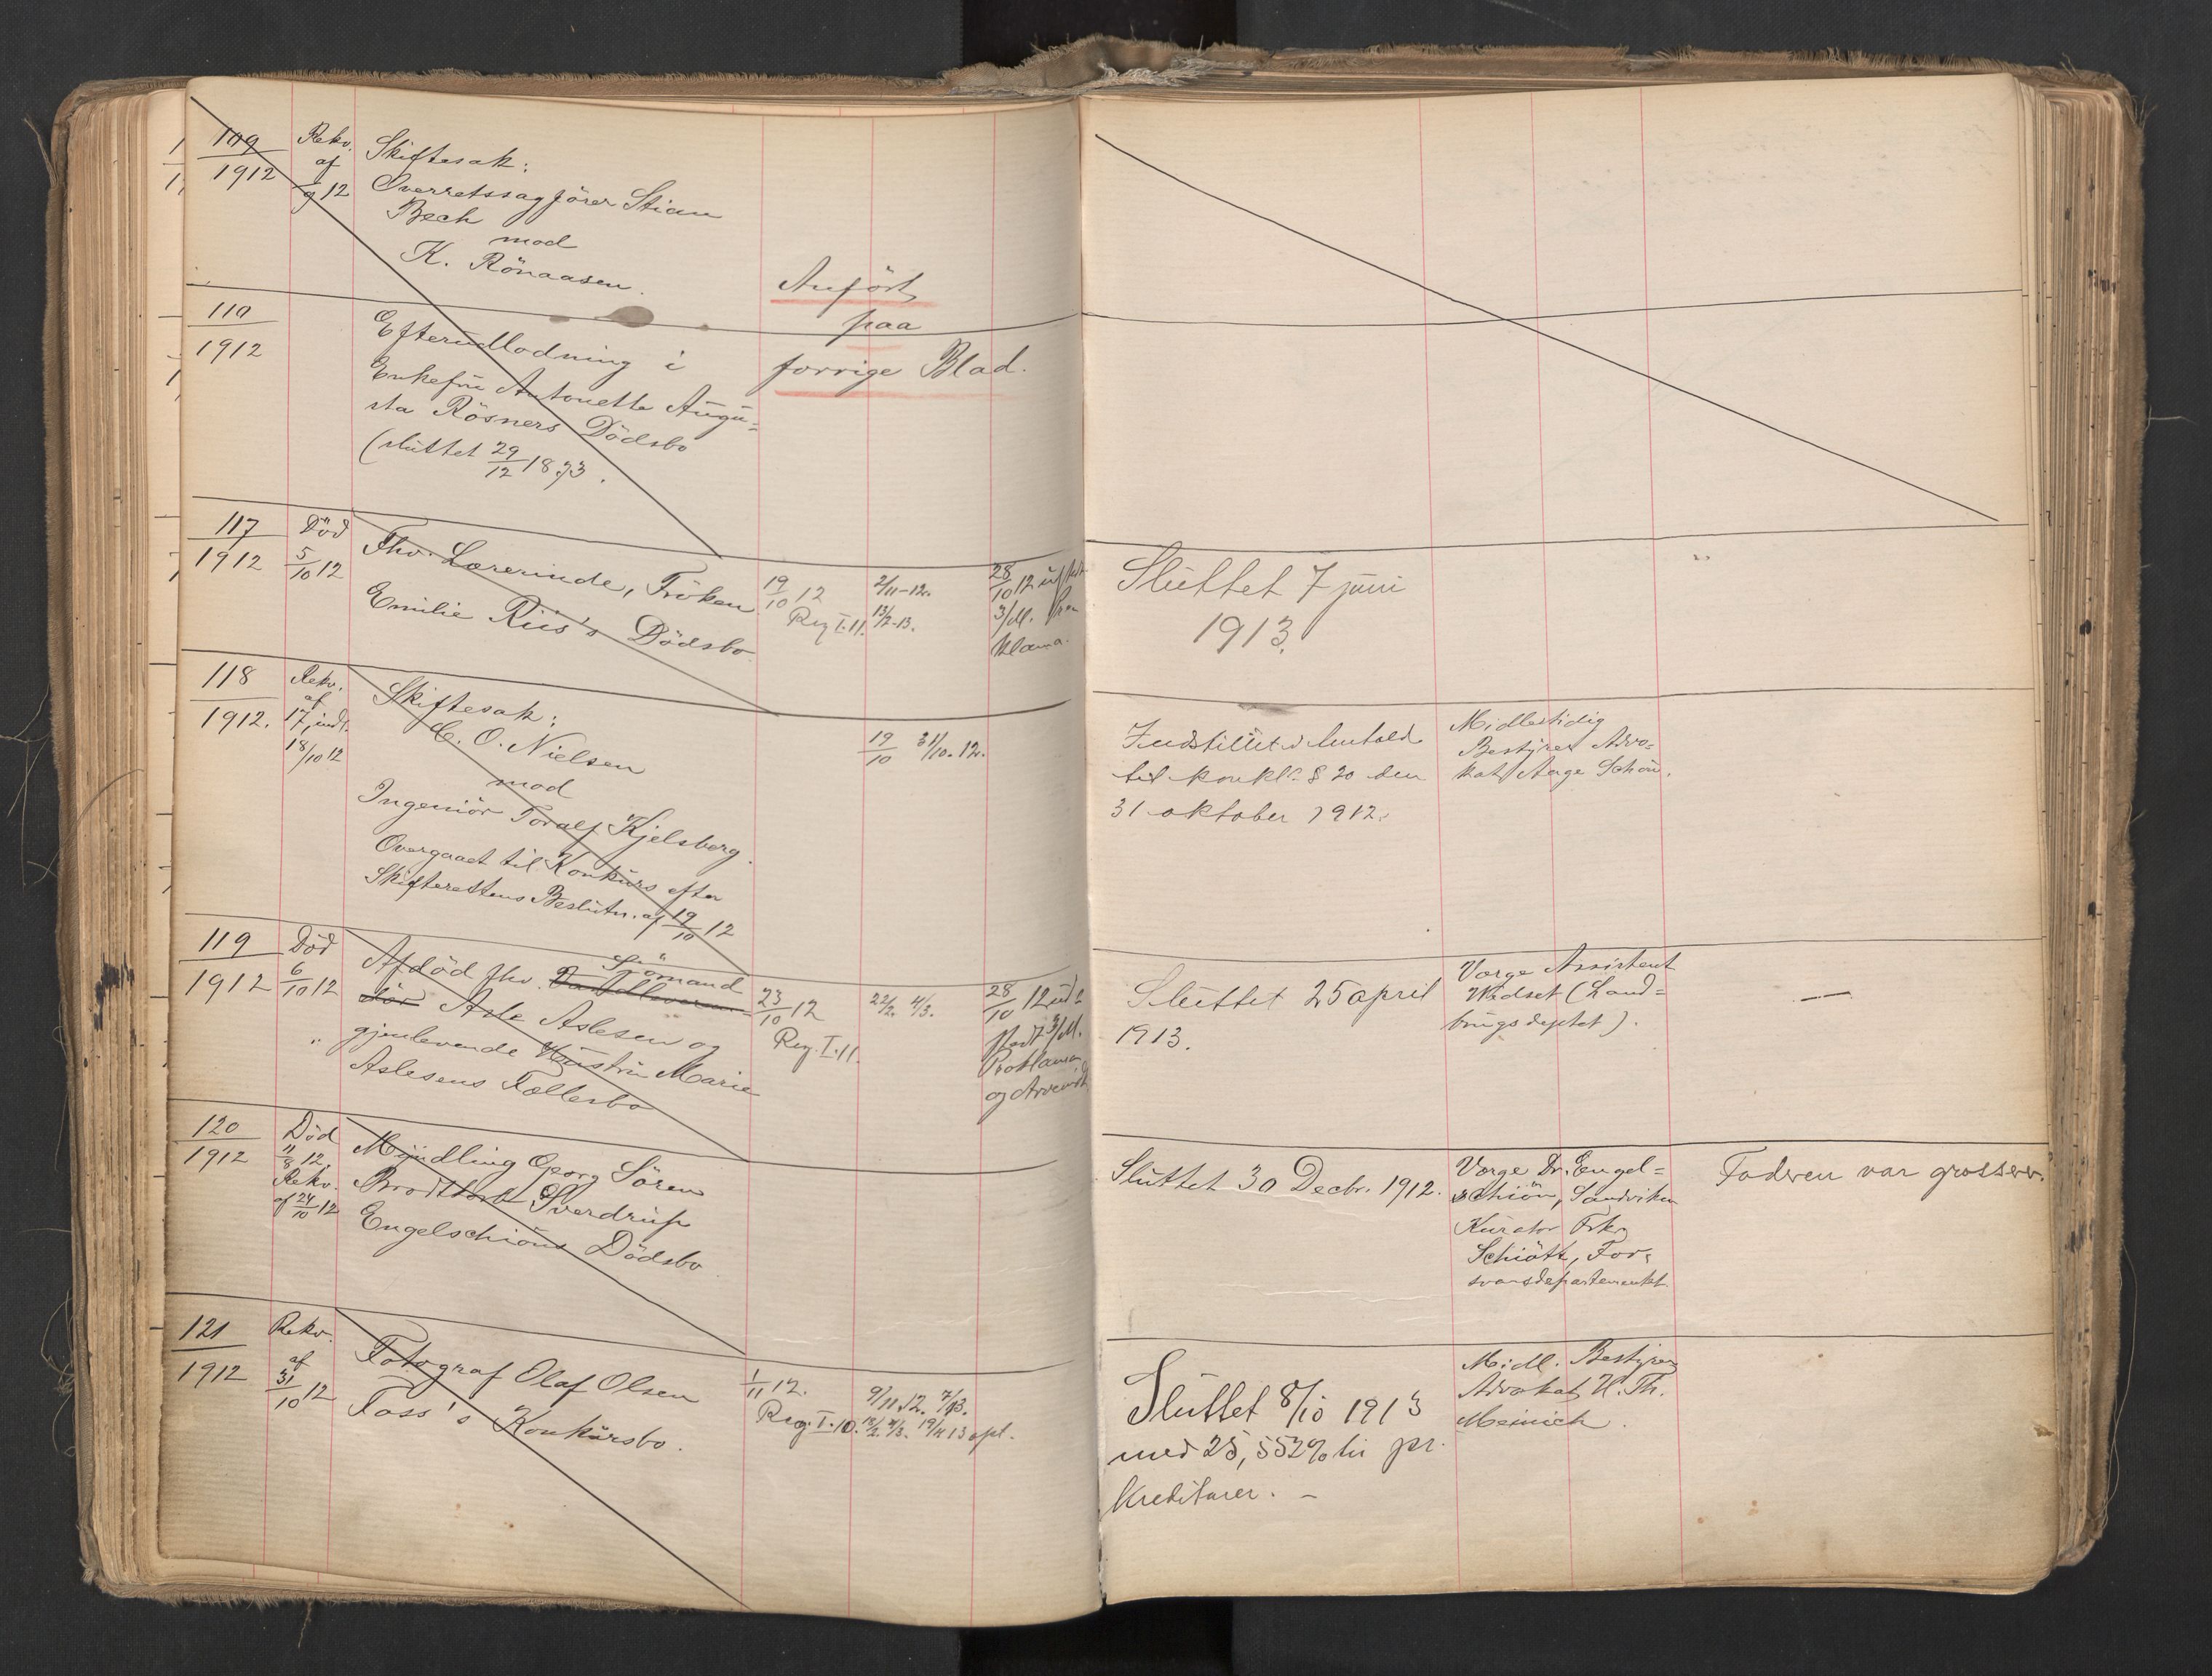 109
1912
Rekv.
af
9 12
Skiftesak:
Overretssagfører Stian
Bech
mod
K. Rönaasen.
Anført
paa
forrige Blad.
110
1912
Efterudlodning i
Enkefru Antonette Augu=
sta Rösners Dödsbo
(sluttet 29/12 1873.
117
1912
Död
5/10 12
Fhv. Lærerinde, Fröken
Emilie Riis's Dödsbo.
19/10 12
Reg I.11.
2/11-12.
13/2-13.
28/10 12 udst.
3/M. Pro
klama.
Sluttet 7 juni
1913.
118
1912.
Rekv.
af
17, indl.
18/10 12
Skiftesak:
C. O. Nielsen
mod
Ingeniör Toralf Kjelsberg.
Overgaaet til Konkurs efter
Skifterettens Beslutn. af 19/10 12
19/10 31/10. 12.
Indstillet i Henhold
til konkl. § 20 den
31 oktober 1912.
Midlertidig
Bestyrer Advo=
kat Aage Schou.
119
1912
Död
6/10 12
Sjömand
Afdöd fhv.
dör Asle Aslesen og
gjenlevende Hustru Marie
Aslesens Fællesbo
23/10 12
Reg. I.11.
22/2. 4/3.
28/10 12 ud=
stedt 3/M.
Proklama
og Arveindk
Sluttet 25 april
1913.
Værge Assistent
Wedset (Land=
brugsdeptet).
—
120
1912
Död
11/8 12.
Rekv.
af 24/10 12
Myndling Georg Sören
Brodtkorb Sverdrup
Engelschiöns Dödsbo
Sluttet 30 Decbr. 1912.
Værge Dr. Engel=
schiön, Sandviken
Kurator Frk.
Schiött, For=
svarsdepartementet.
Faderen var grosserer.
121
1912
Rekv.
af
31/10 12
Fotograf Olaf Olsen
Foss's Konkursbo.
1/11 12.
Reg. I.10.
9/11 12. 7/1 13.
18/2. 4/3. 19/4 13 opl.
Sluttet 8/10 1913
med 25,552% til pr.
kreditorer. —
Midl. Bestyrer
Advokat H. Th.
Meinich.